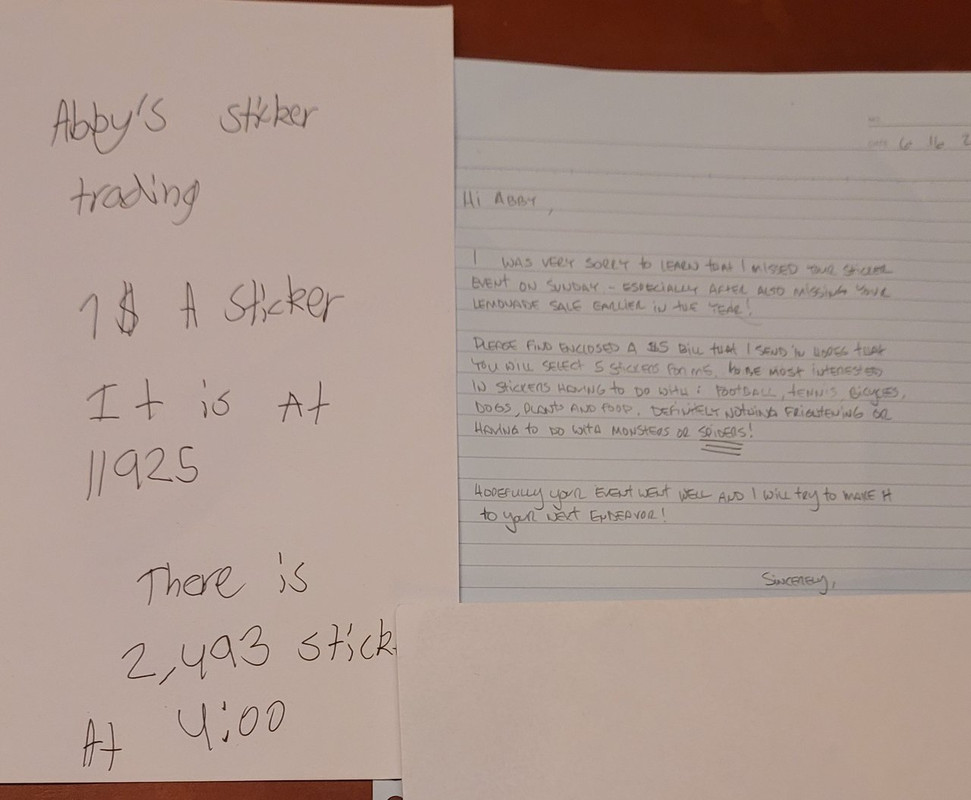 Abby's sticker
trading
1$ A sticker
It is At
11925
There is
2,493 stick
At 4:00
6 16 2
Hi ABBY,
I WAS VERY SORRY to LEARN that I MISSED YOUR STICKER
EVENT ON SUNDAY - ESPECIALLY AFTER ALSO MISSING YOUR
LEMONADE SALE EARLIER IN THE YEAR!
PLEASE FIND ENCLOSED A $5 Bill that I SEND IN HOPES THAT
YOU WILL SELECT 5 STICKERS FOR ME. MOST INTERESTED
IN STICKERS HAVING to DO WITH: FOOTBALL, TENNIS, BICYCLES,
DOGS, PLANTS AND FOOD. DEFINITELY NOTHING FRIGHTENING OR
HAVING TO DO WITH MONSTERS OR SPIDERS!
HOPEFULLY your EVENT WENT WELL AND I WILL try to MAKE IT
to your NEXT ENDEAVOR!
SINCERELY,